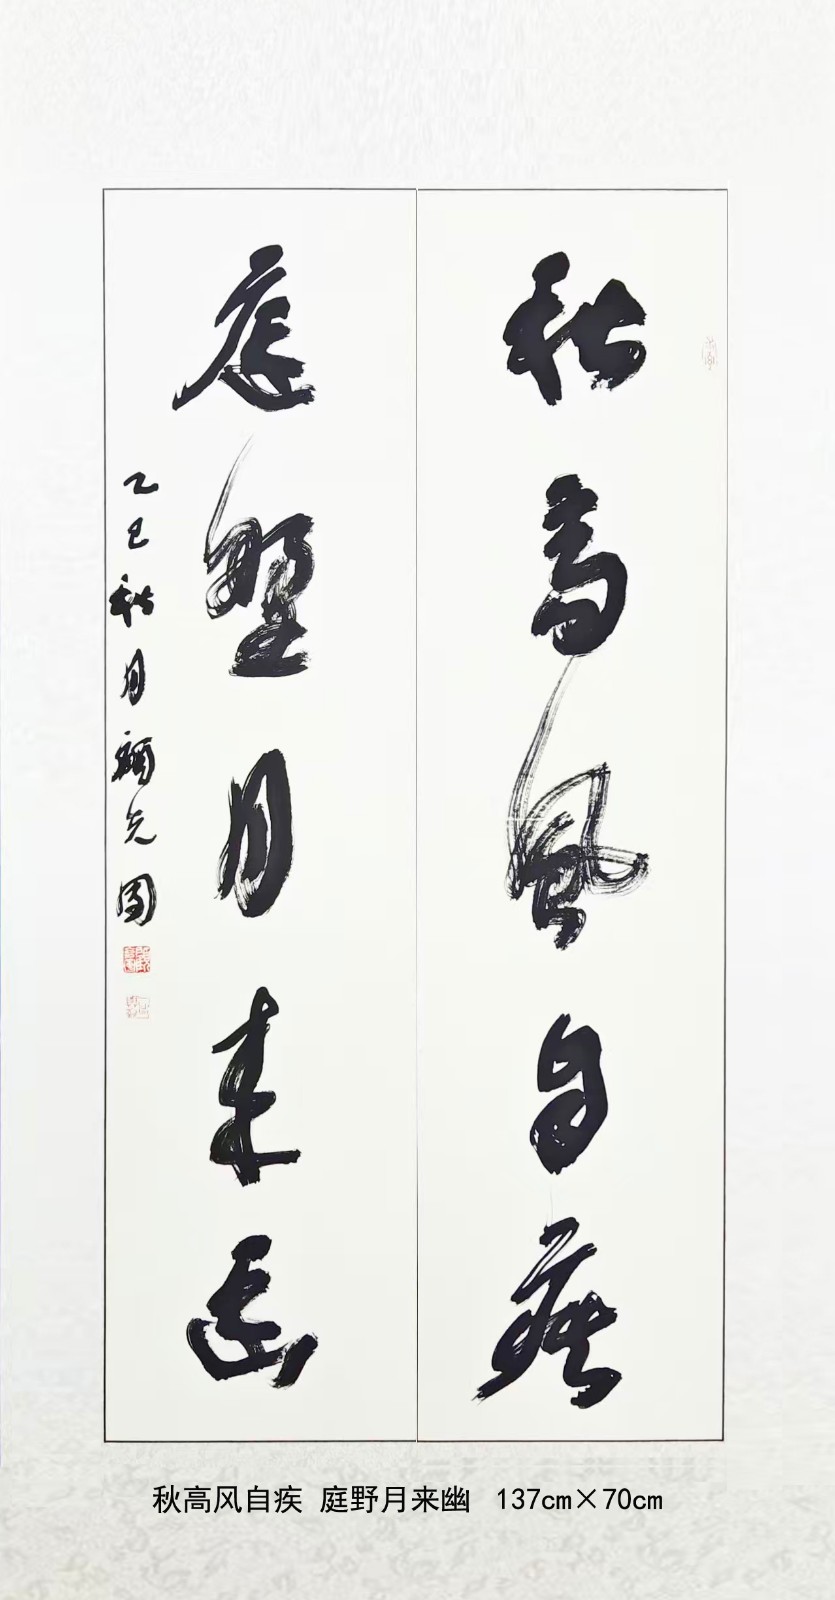 秋高风自疾
庭野月来幽
乙巳秋月
秋高风自疾 庭野月来幽 137cm×70cm